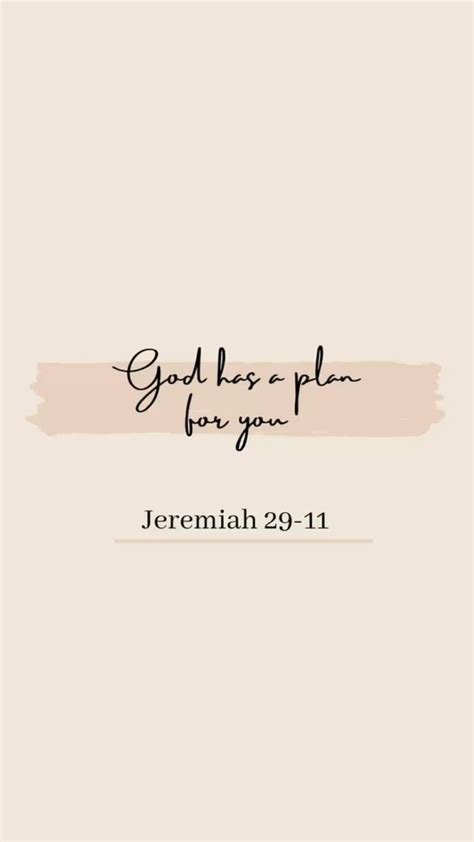 God has a plan
for you
Jeremiah 29-11